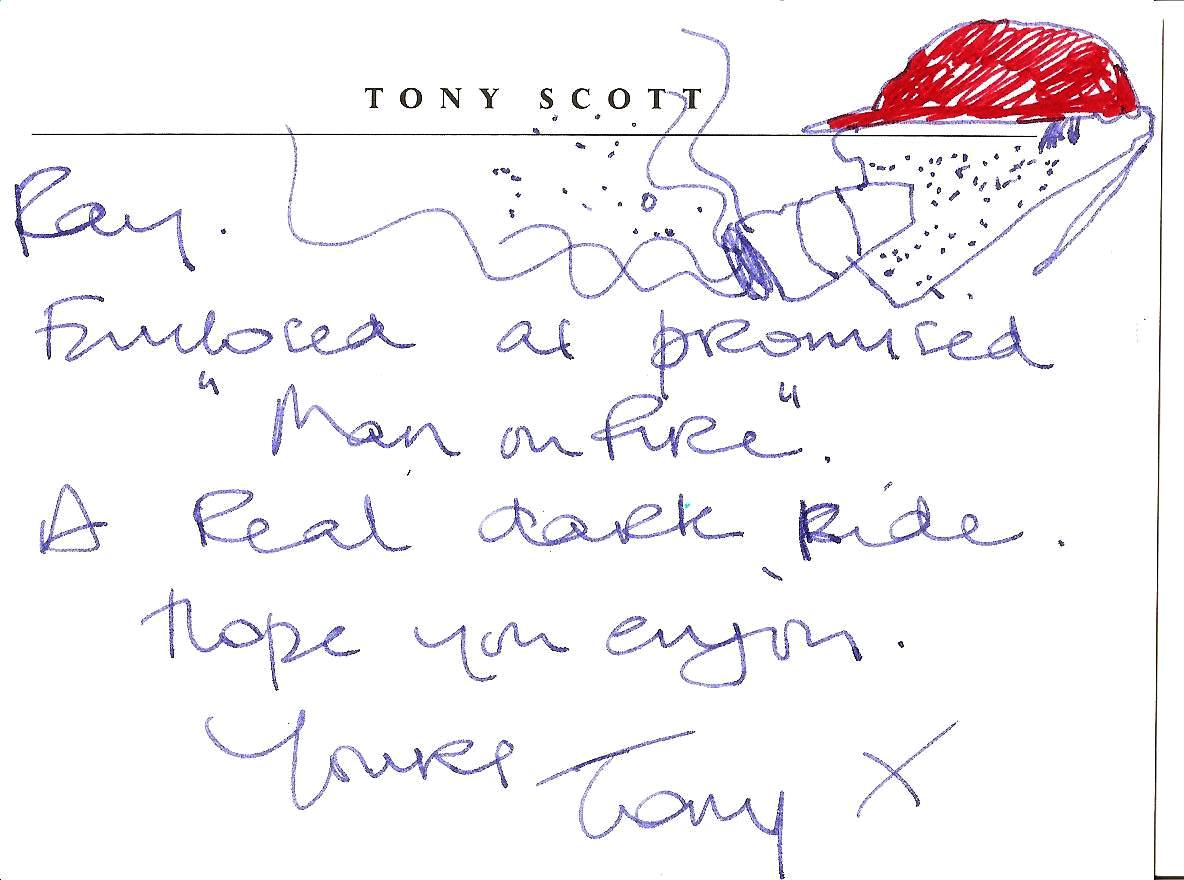 TONY SCOTT
Ray.
Enclosed as promised
"Man on Fire".
A Real dark Ride.
Hope you enjoy.
Yours Tony X